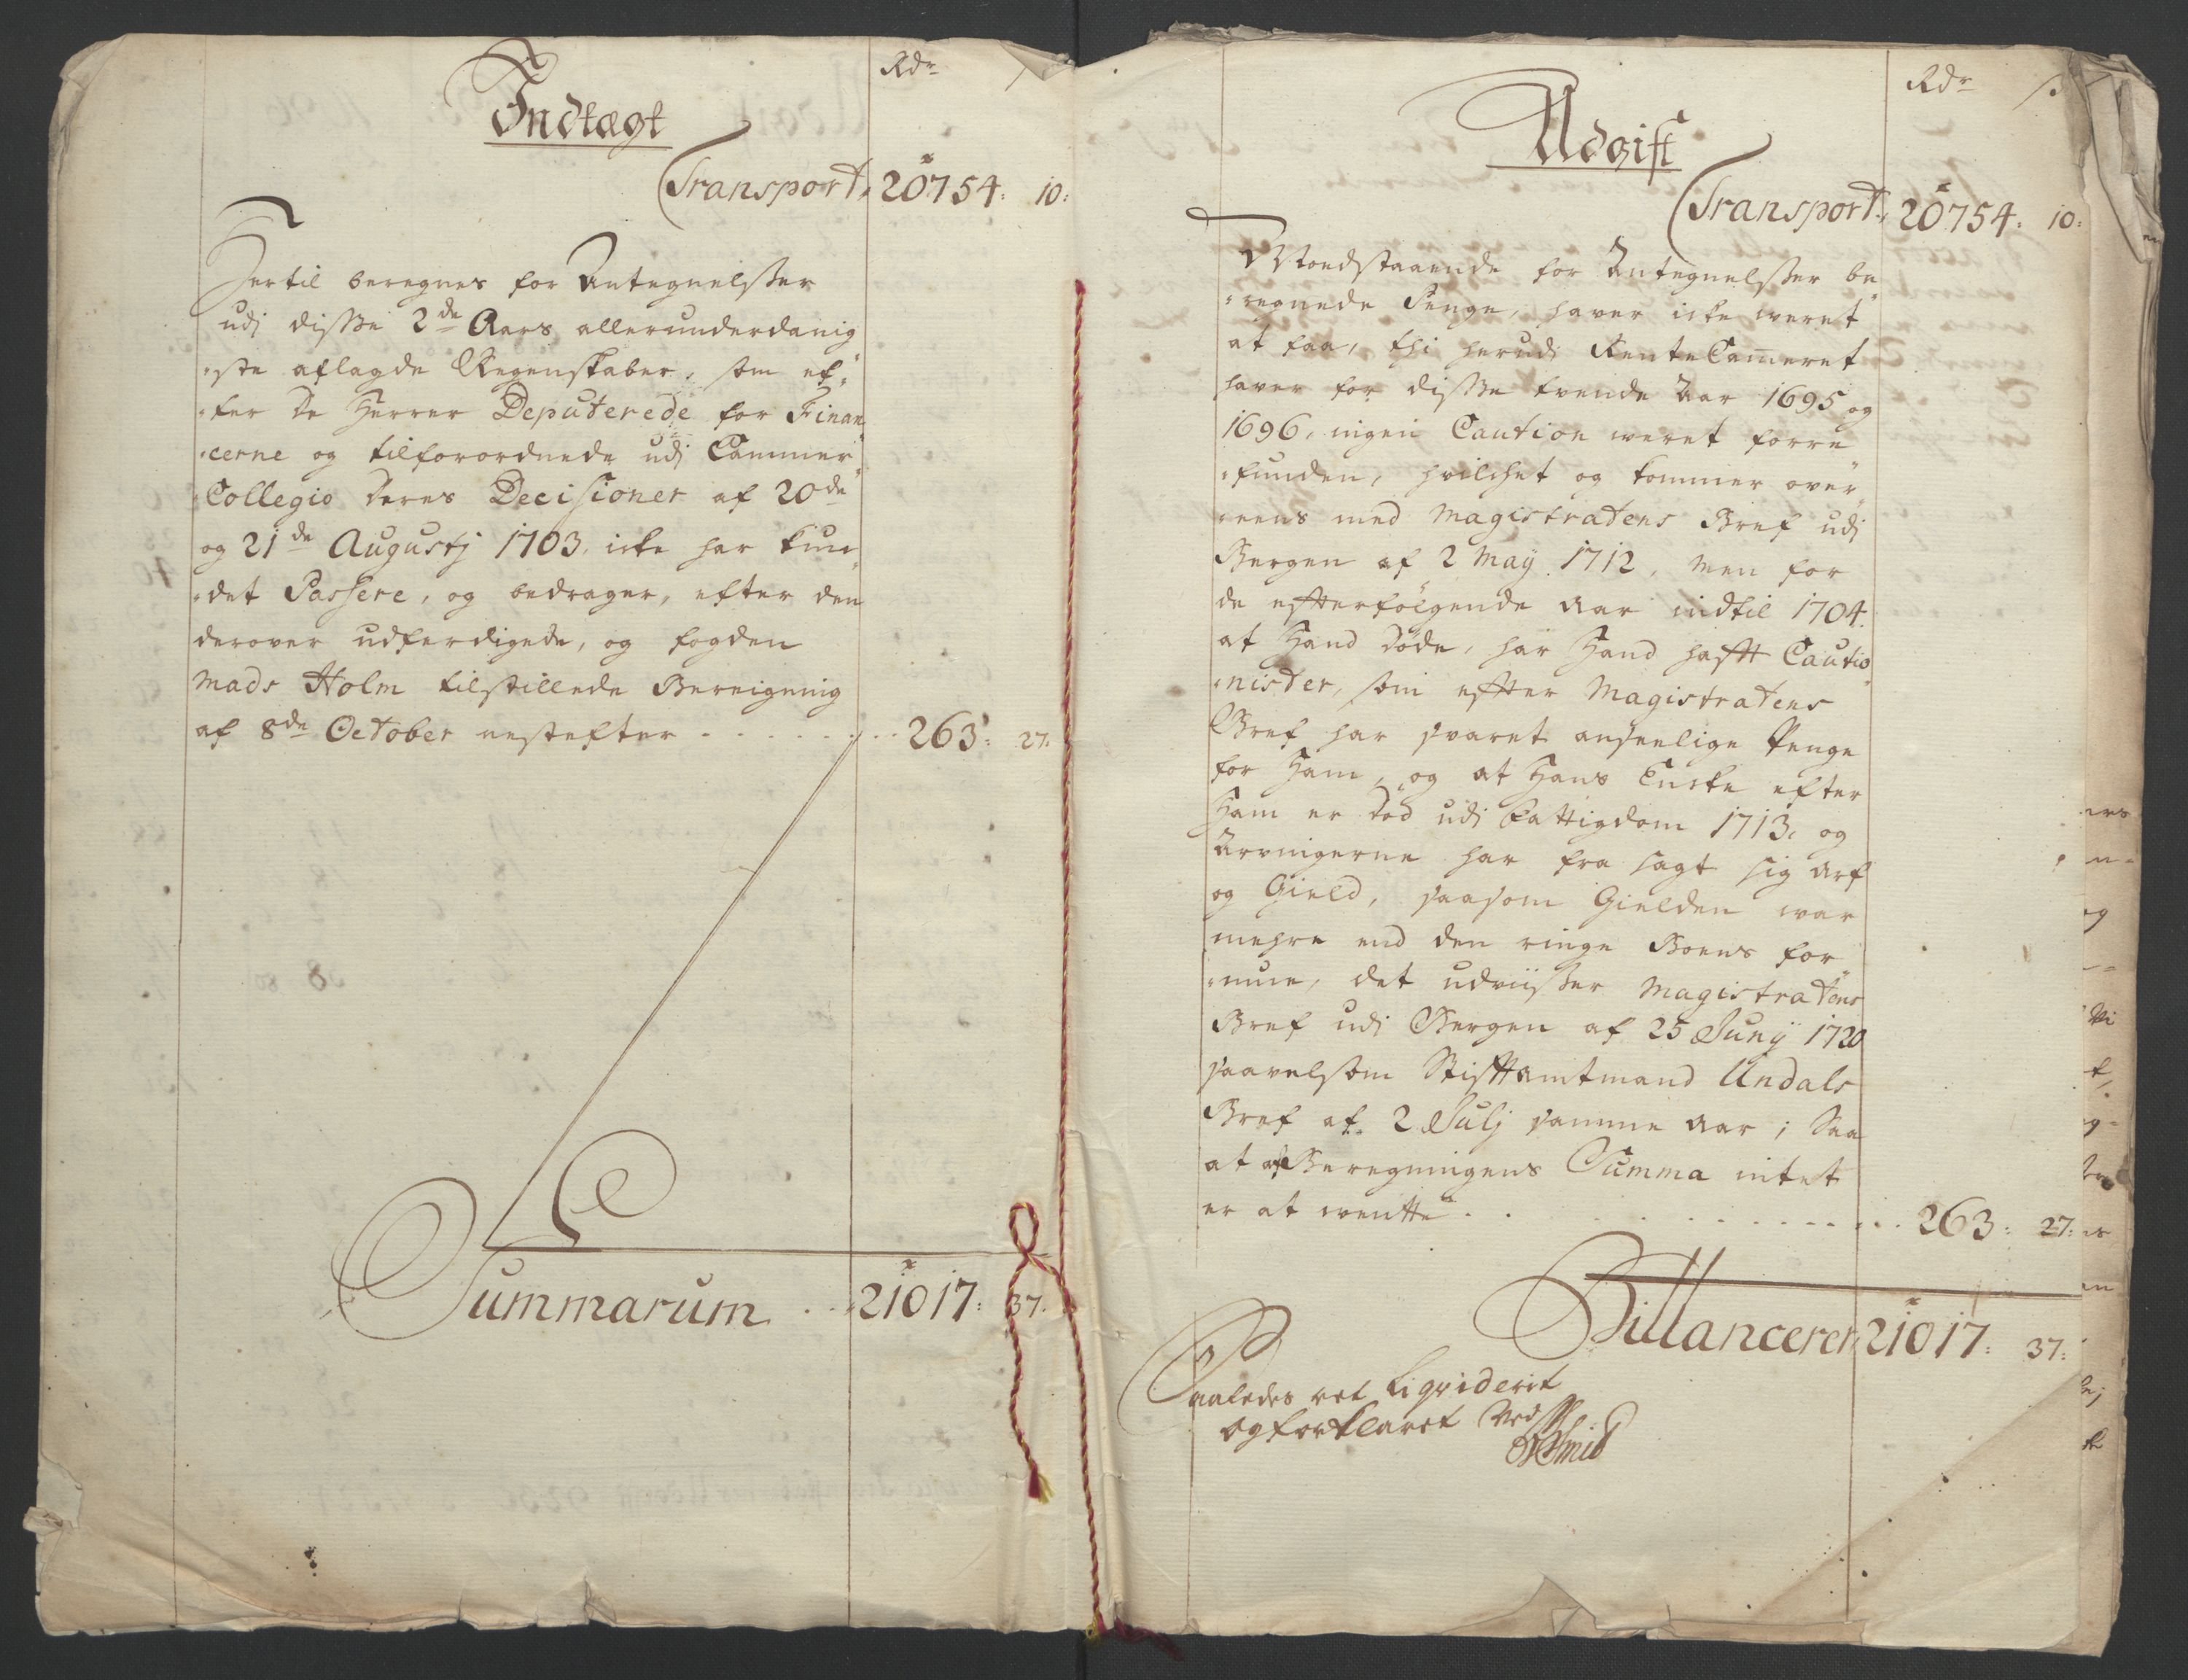 Indtægt
Rdr ſ
Transport, 20754: 10:
Hertil beregnes for Antegnelsser
udj disse 2de Aars allerunderdanig
ste aflagde Regenskaber, som ef
ter De Herrer Deputerede for Finan
cerne og tilforordnede udj Cammer
Collegio Deres Decisioner af 20de
og 21de Augustj 1703, icke har kun
det Passere, og bedrager, efter den
derover udferdigede, og fogden
Mads Holm tilstillede Bereigning
af 8de October nestefter - - - - - - - 263: 27:
Summarum - - 21017: 37:
Udgift
Rdr ſ
Transport, 20754: 10:
Modstaaende for Antegnelsser be
regnede Penge, haver icke weret
at faa, thi herudj Rente Cameret
haver for disse tvende Aar 1695 og
1696, ingen Caution weret forre
funden, hvilchet og kommer over
eens med Magistratens Bref udj
Bergen af 2 May 1712, Men for
de efterfølgende Aar indtil 1704.
at Hand døde, har Hand hafft Cautio
nister, som effter Magistratens
Bref har svaret anseelige Penge
for Ham, og at Hans Encke efter
Ham er død udj Fattigdom 1713, og
Arvingerne har fra sagt sig Arf
og Gield, saasom Gielden war
mehre end den ringe Boens for
mue, det udviisser Magistratens
Bref udj Bergen af 25 Junij 1720
saavelsom Stifftamtmand Undals
Bref af 2 Julj samme Aar; Saa
at af Beregningens Summa intet
er at wentte - - - - - - - - 263: 27:
Billancerer 21017: 37:
Saaledes ret Liqviderit
og forklaret Ved
Smid